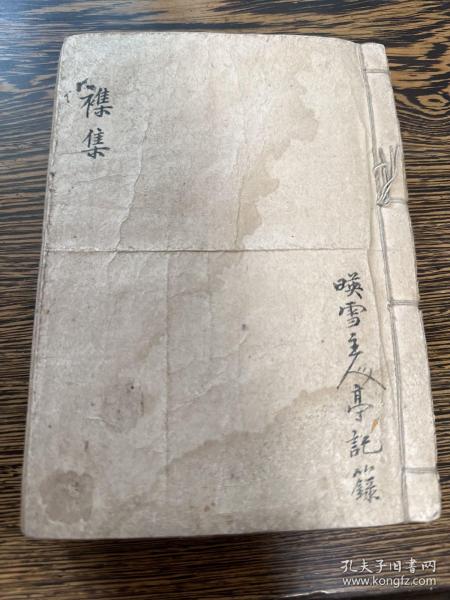 襍集
暎雪主人亭記籙
孔夫子旧书网
www.kongfz.com